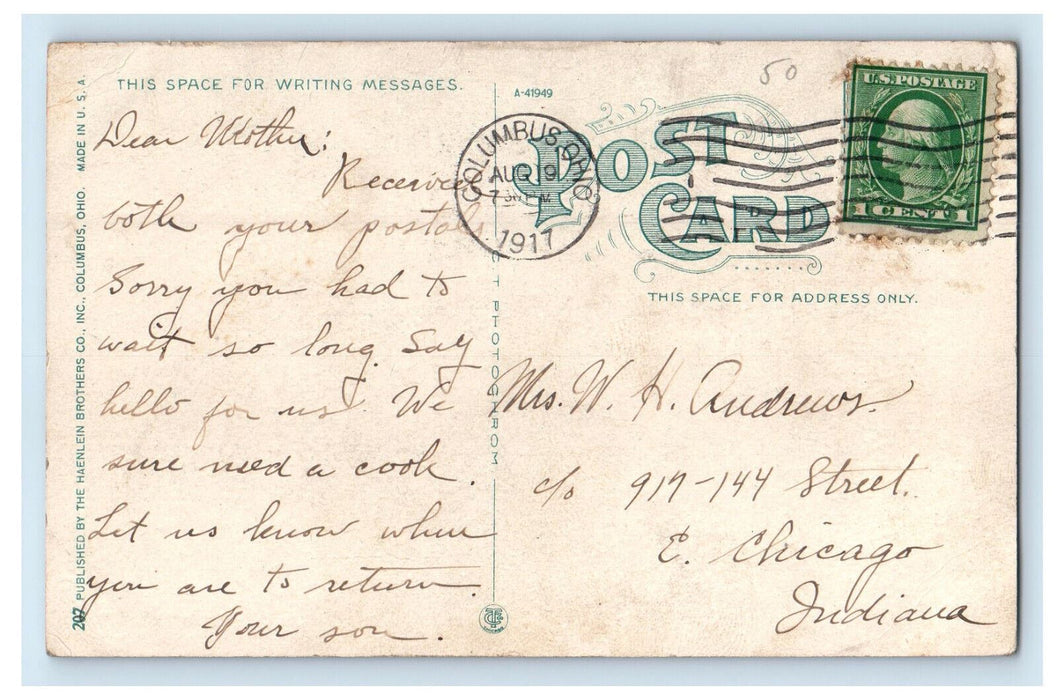 50
THIS SPACE FOR WRITING MESSAGES.
A-41949
POST
CARD
COLUMBUS, OHIO
AUG 19
7 30 PM
1917
U.S. POSTAGE
1 CENT 1
THIS SPACE FOR ADDRESS ONLY.
Dear Mother:
Received
both your postals
Sorry you had to
wait so long. Say
hello for us. We
sure need a cook.
Let us know when
you are to return.
Your son.
Mrs. W. H. Andrews.
c/o 917-144 Street.
E. Chicago
Indiana
207 PUBLISHED BY THE HAENLEIN BROTHERS CO., INC., COLUMBUS, OHIO. MADE IN U. S. A.
T PHOTOCHROM